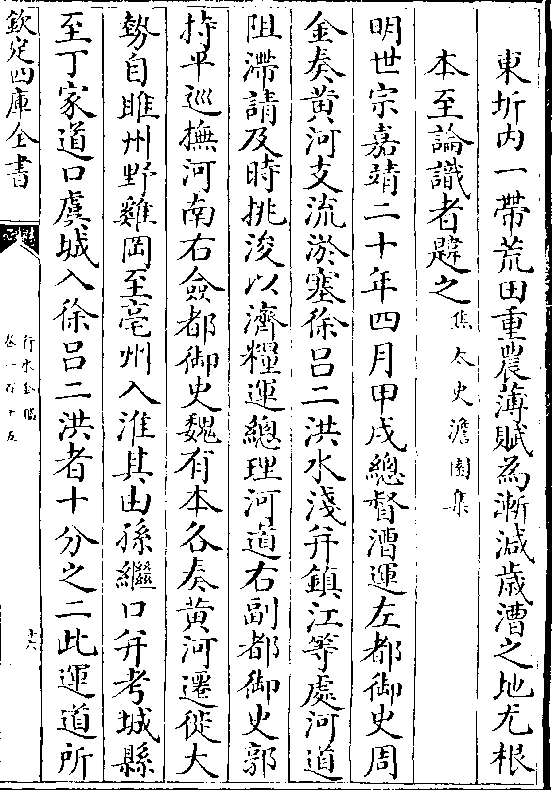 東圻内一帶荒田重農薄賦為漸減歲漕之地尤根
本至論識者韙之焦太史澹園集
明世宗嘉靖二十年四月甲戌總督漕運左都御史周
金奏黄河支流淤塞徐吕二洪水淺并鎮江等處河道
阻滯請及時挑浚以濟糧運總理河道右副都御史郭
持平巡撫河南右僉都御史魏有本各奏黄河遷徙大
勢自睢州野雞岡至亳州入淮其由孫繼口并考城縣
至丁家道口虞城入徐吕二洪者十分之二此運道所
欽定四庫全書
行水金鑑
卷一百十五
十六